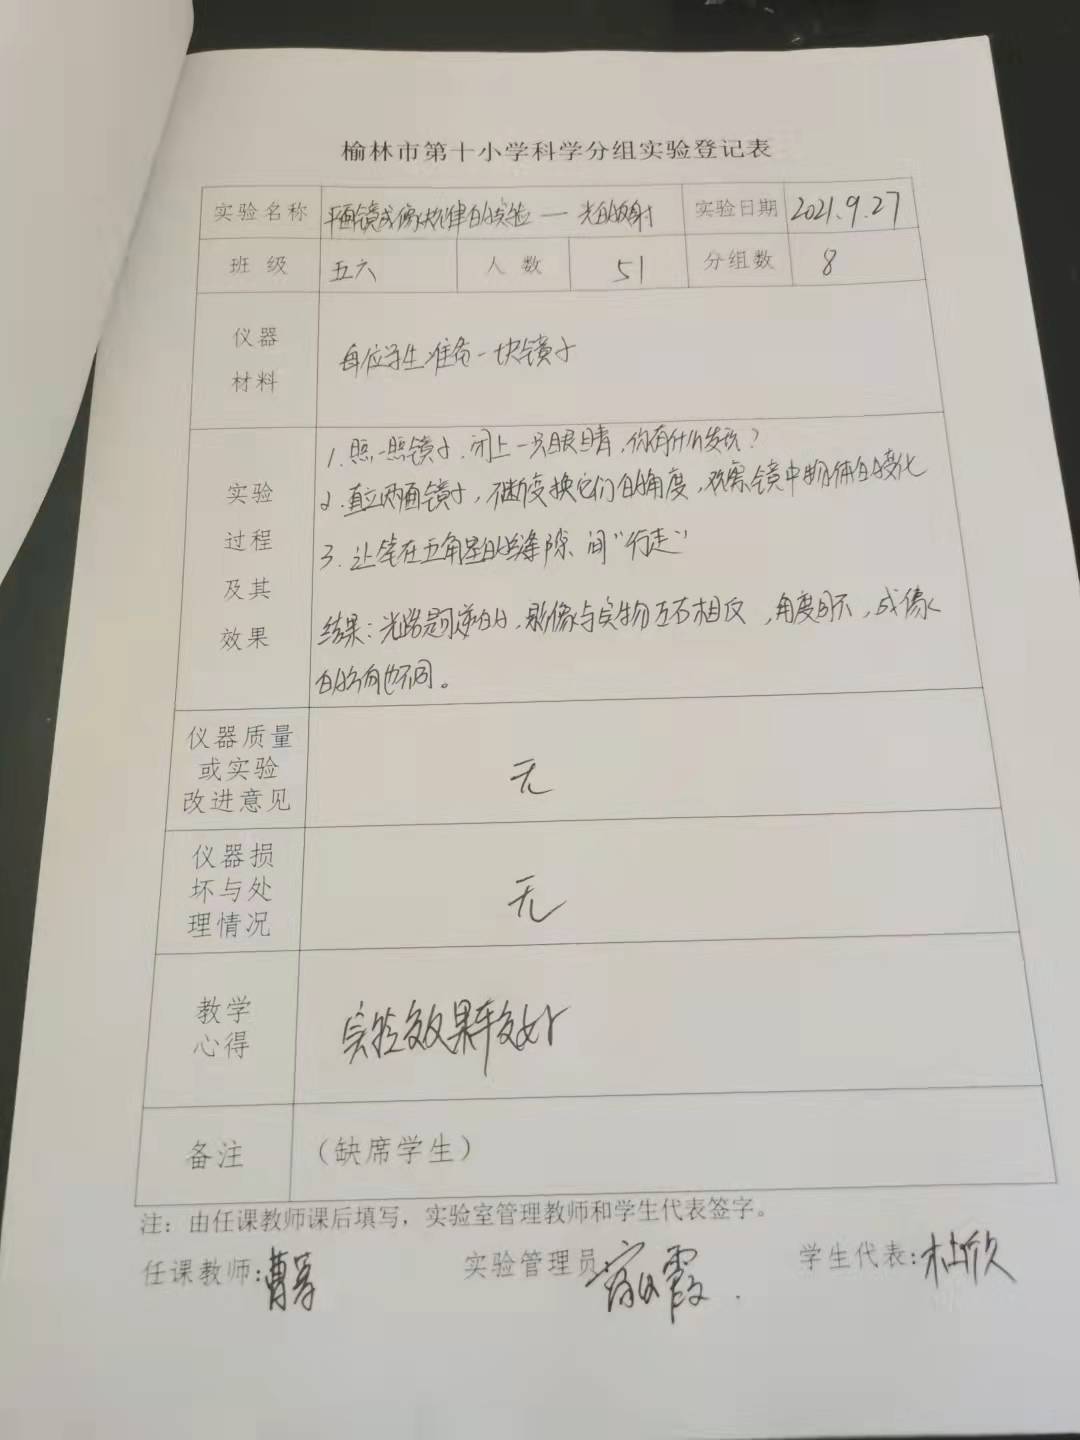 榆林市第十小学科学分组实验登记表
实验名称 平面镜成像规律的实验——光的反射 实验日期 2021.9.27
班 级 五六 人 数 51 分组数 8
仪器
材料
每位学生准备一块镜子
实验
过程
及其
效果
1.照一照镜子,闭上一只眼睛,你有什么发现?
2.直立两面镜子,不断变换它们的角度,观察镜中物体的变化
3.让笔在五角星的缝隙间“行走”
结果:光路是可逆的,影像与实物左右相反,角度不同,成像
的方向也不同。
仪器质量
或实验
改进意见
无
仪器损
坏与处
理情况
无
教学
心得
实验效果较好
备注
(缺席学生)
注:由任课教师课后填写,实验室管理教师和学生代表签字。
任课教师: 曹 实验管理员: 霞 学生代表: 杜欣